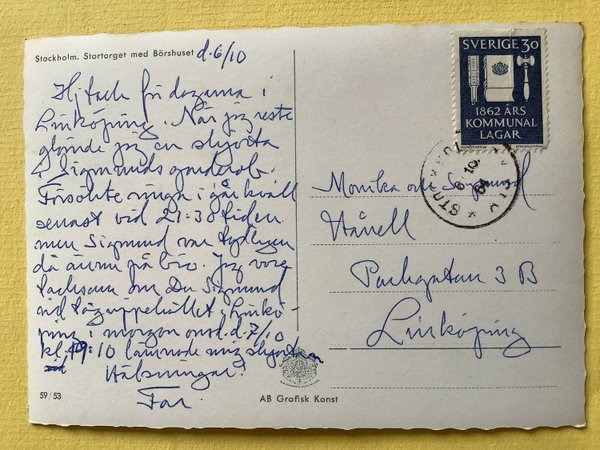 Stockholm. Stortorget med Börshuset
d. 6/10
Hj tack för dagarna i
Linköping. När jag reste
glömde jag en skjorta
i Sigmunds garderob.
Försökte ringa i går kväll
senast vid 21.30 tiden
men Sigmund var tydligen
då ännu på bio. Jag vore
tacksam om Du Sigmund
vid tåguppehållet i Linkö-
ping i morgon onsd. d. 7/10
kl. 19:10 lämnade mig skjortan
Hälsningar!
Far.
59/53
AB Grafisk Konst
SVERIGE 30
1862 ÅRS
KOMMUNAL
LAGAR
6.10
64
Monika och Sigmund
Hånell
Parkgatan 3 B
Linköping